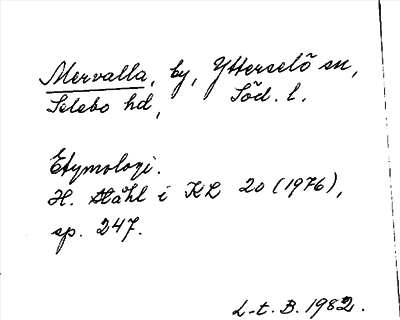 Mervalla, by, Ytterselö sn,
Selebo hd, Söd. l.
Etymologi.
H. Ståhl i KL 20 (1976),
sp. 247.
L-t. B. 1982.